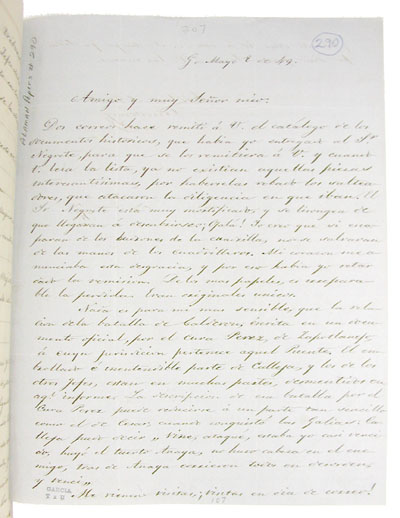 707
290
G. Mayo 1 de 49.
Amigo y muy Señor mio:
Dos correos hace remití á V. el catálogo de los
documentos históricos, que habia yo entregar al Sr.
Negrete, para que se los remitiera á V. y cuando
V. leia la lista, ya no existian aquellas piezas
interesantísimas, por haberselas robado los saltea-
dores, que atacaron la diligencia en que iban. El
Sr. Negrete está muy mortificado, y se lisongea de
que llegaran á descubrirse. Ojalá! Yo creo que si esca-
paran de los ladrones de la no se salvaran
de las manos de los Mi corazon me a-
nunciaba esta desgracia, y por eso habia yo retar-
dado la remision. De los mas papeles, es irrepara-
ble la perdida. Eran originales unicos.
Nada es para mi mas sensible, que la rela-
cion de la batalla de Calderon, escrita en un docu-
mento oficial, por el cura Perez, de Zapotlanejo
á cuya jurisdiccion pertenece aquel Puente. El em-
brollado é parte de Calleja, y los de los
otros Jefes, estan en muchas partes, desmentidos en
aquel informe. La descripcion de esa batalla por el
Cura Perez puede reducirse á un parte tan sencillo
como el de Cesar, cuando conquistó las Galias: Ca-
lleja pudo decir „Vine, ataque, estaba yo casi venci-
do, huyó el tuerto Anaya, no hubo cabeza en el ene-
migo, tras de Anaya corrieron todos en desorden,
y venci„
Me vienen visitas; ¡visitas en dia de correo!
GARCIA
127